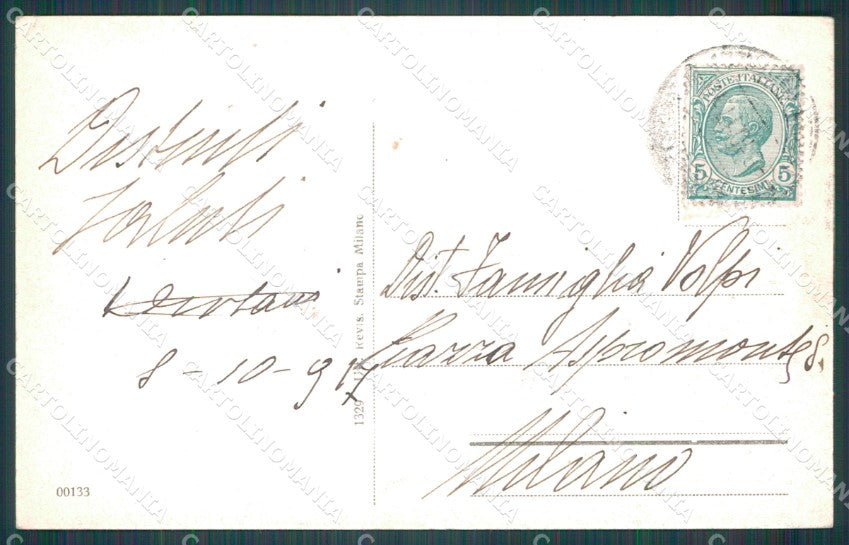 Distinti
saluti
8-10-917
00133
1329 Revis. Stampa Milano
POSTE·ITALIANE
5 CENTESIMI 5
Dist. Famiglia Volpi
Piazza Aspromonte 8.
Milano
CARTOLINOMANIA